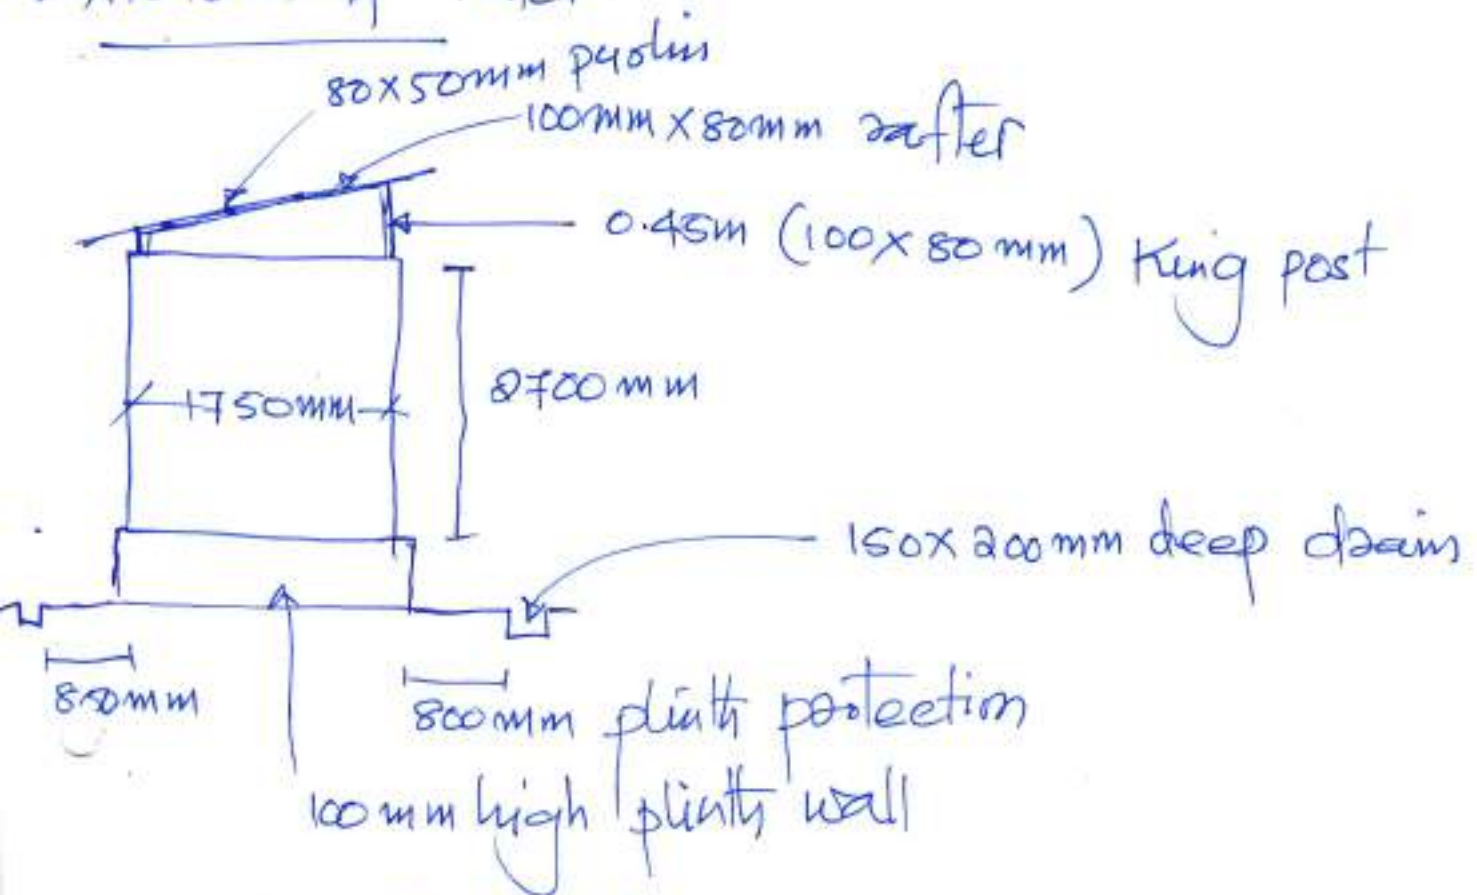 80x50mm purlin
100mm x 80mm rafter
0.45m (100x80mm) King post
1750mm
2700mm
150x200mm deep drain
800mm plinth protection
100mm high plinth wall